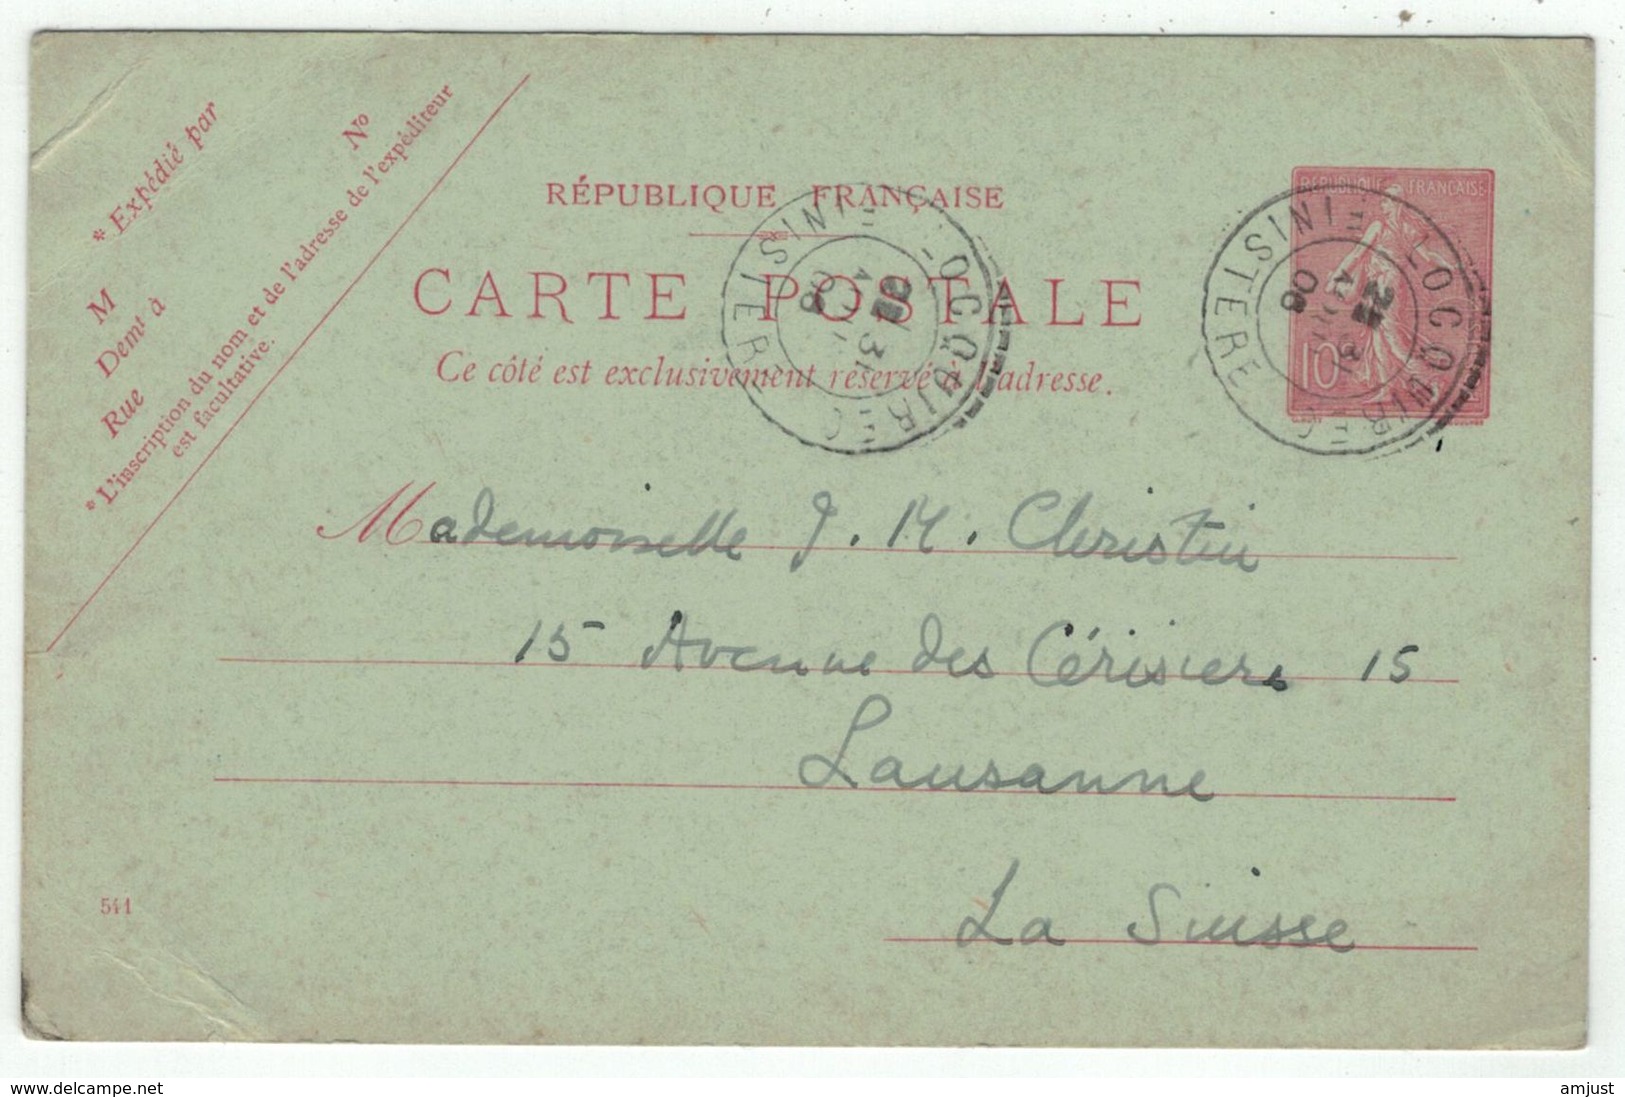 * Expédié par
M
Demt à
Rue
Nº
* L'inscription du nom et de l'adresse de l'expéditeur
est facultative.
RÉPUBLIQUE FRANÇAISE
CARTE POSTALE
Ce côté est exclusivement réservé à l'adresse.
RÉPUBLIQUE FRANÇAISE
10
LOCQUIREC
FINISTERE
31
06
LOCQUIREC
FINISTERE
31
06
Mademoiselle J. M. Christin
15 Avenue des Cérisiers 15
Lausanne
La Suisse
541
www.delcampe.net
amjust